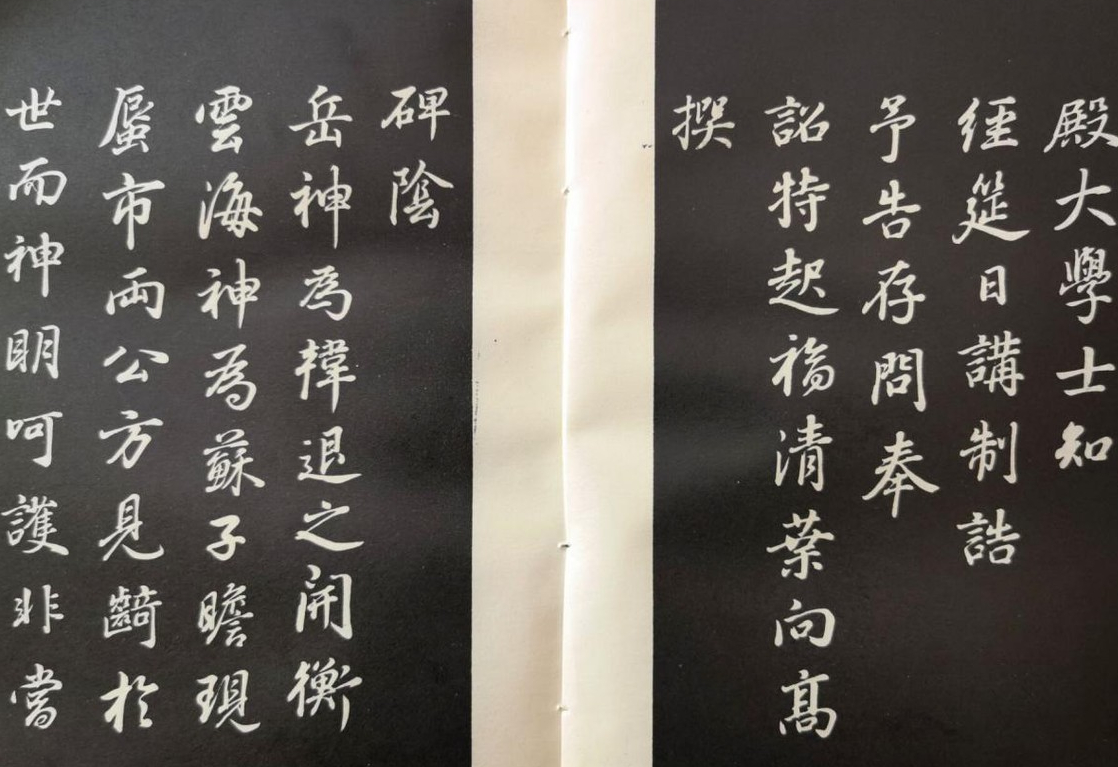 殿大學士知
經筵日講制誥
予告存問奉
詔特起福清葉向高
撰
碑陰
岳神為韓退之開衡
雲海神為蘇子瞻現
蜃市兩公方見齮於
世而神明呵護非當